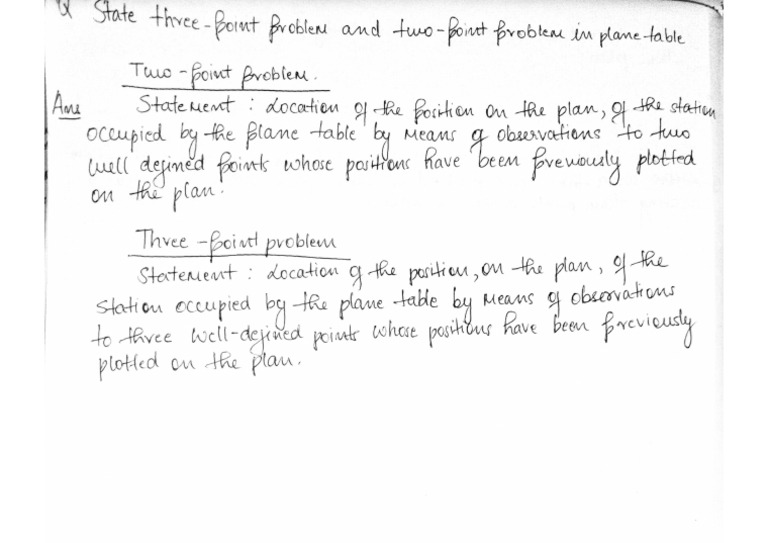 Q State three-point problem and two-point problem in plane-table
Two-point problem.
Ans Statement : Location of the position on the plan, of the station
occupied by the plane table by means of observations to two
well defined points whose positions have been previously plotted
on the plan.
Three-point problem
Statement : Location of the position, on the plan, of the
station occupied by the plane table by means of observations
to three well-defined points whose positions have been previously
plotted on the plan.